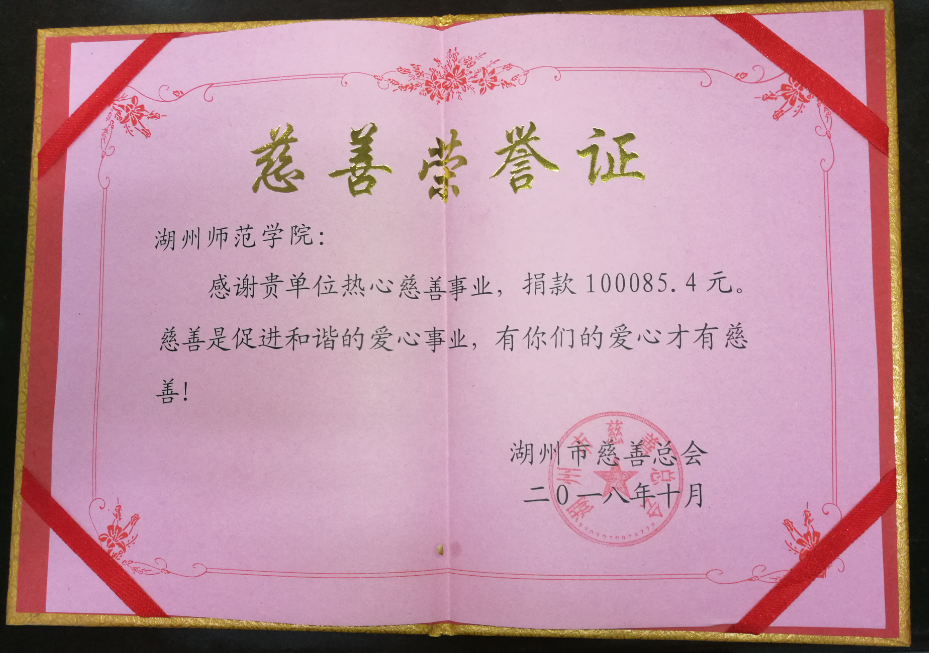 慈善荣誉证
湖州师范学院：
感谢贵单位热心慈善事业，捐款100085.4元。
慈善是促进和谐的爱心事业，有你们的爱心才有慈
善！
湖州市慈善总会
二0一八年十月
湖州市慈善总会